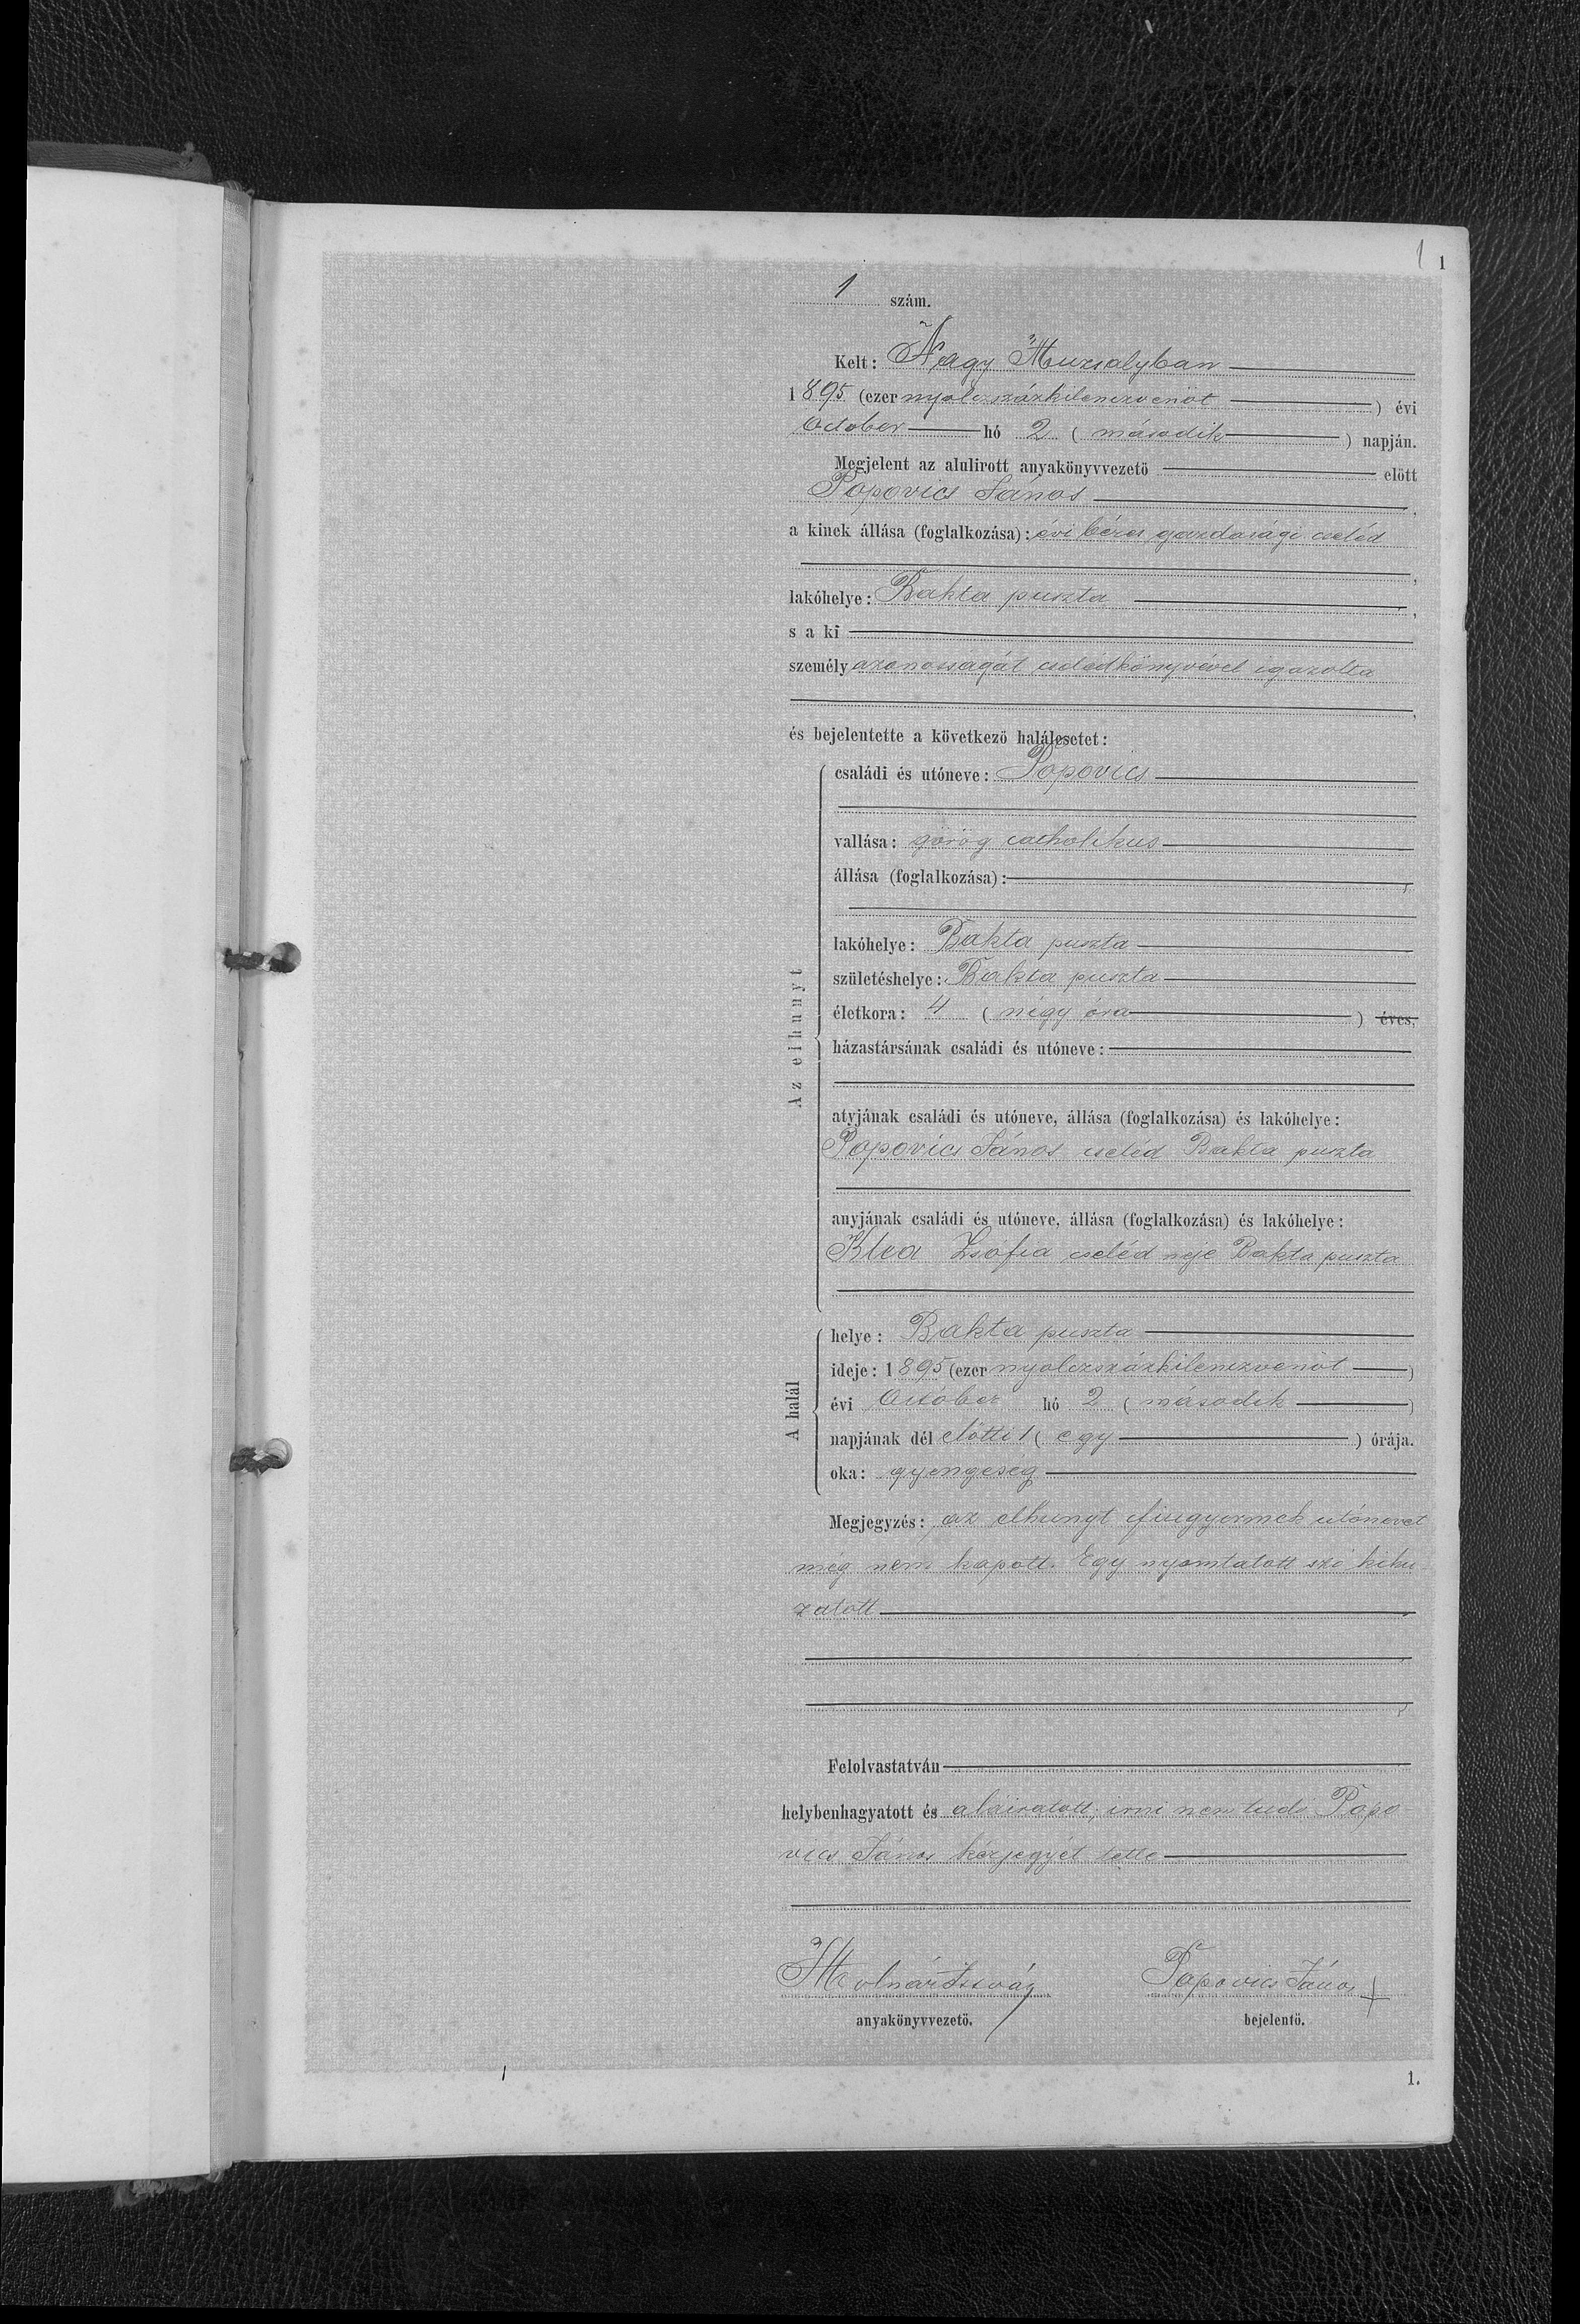 1 1
1 szám.
Kelt: Nagy Muzsalyban
1895 (ezer nyolczszázkilenczvenöt) évi
October hó 2 (második) napján.
Megjelent az alulirott anyakönyvvezető előtt
Popovics János,
a kinek állása (foglalkozása): évi béres gazdasági cseléd
lakóhelye: Bakta puszta,
s a ki
személyazonosságát cselédkönyvével igazolta
és bejelentette a következő halálesetet:
Az elhunyt
családi és utóneve: Popovics
vallása: görög catholikus
állása (foglalkozása):
lakóhelye: Bakta puszta
születéshelye: Bakta puszta
életkora: 4 (négy óra) éves,
házastársának családi és utóneve:
atyjának családi és utóneve, állása (foglalkozása) és lakóhelye:
Popovics János cseléd Bakta puszta
anyjának családi és utóneve, állása (foglalkozása) és lakóhelye:
Zsófia cseléd neje Bakta puszta
A halál
helye: Bakta puszta
ideje: 1895 (ezer nyolczszázkilenczvenöt)
évi October hó 2 (második)
napjának dél előtti 1 (egy) órája.
oka: gyengeség
Megjegyzés: az elhunyt fiugyermek utónevet
még nem kapott. Egy nyomtatott szó kihu
zatott
Felolvastatván
helybenhagyatott és aláiratott, irni nem tudó Popo
vics János kézjegyét tette
Molnár István Popovics János +
anyakönyvvezető. bejelentő.
1.